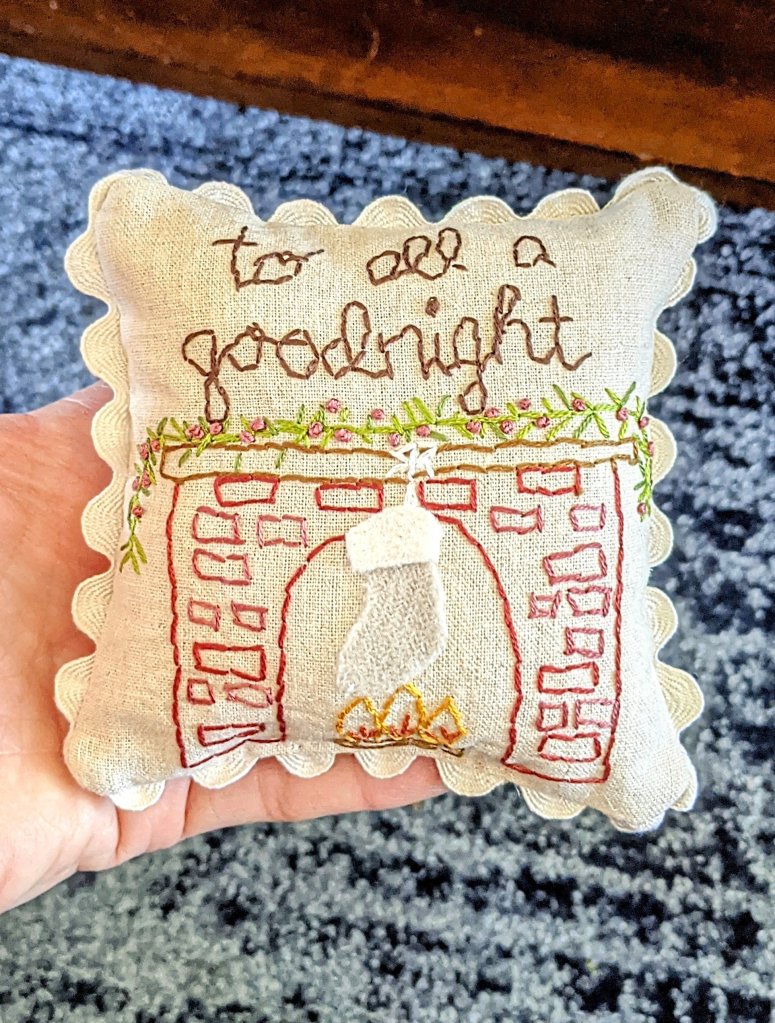 to all a
goodnight